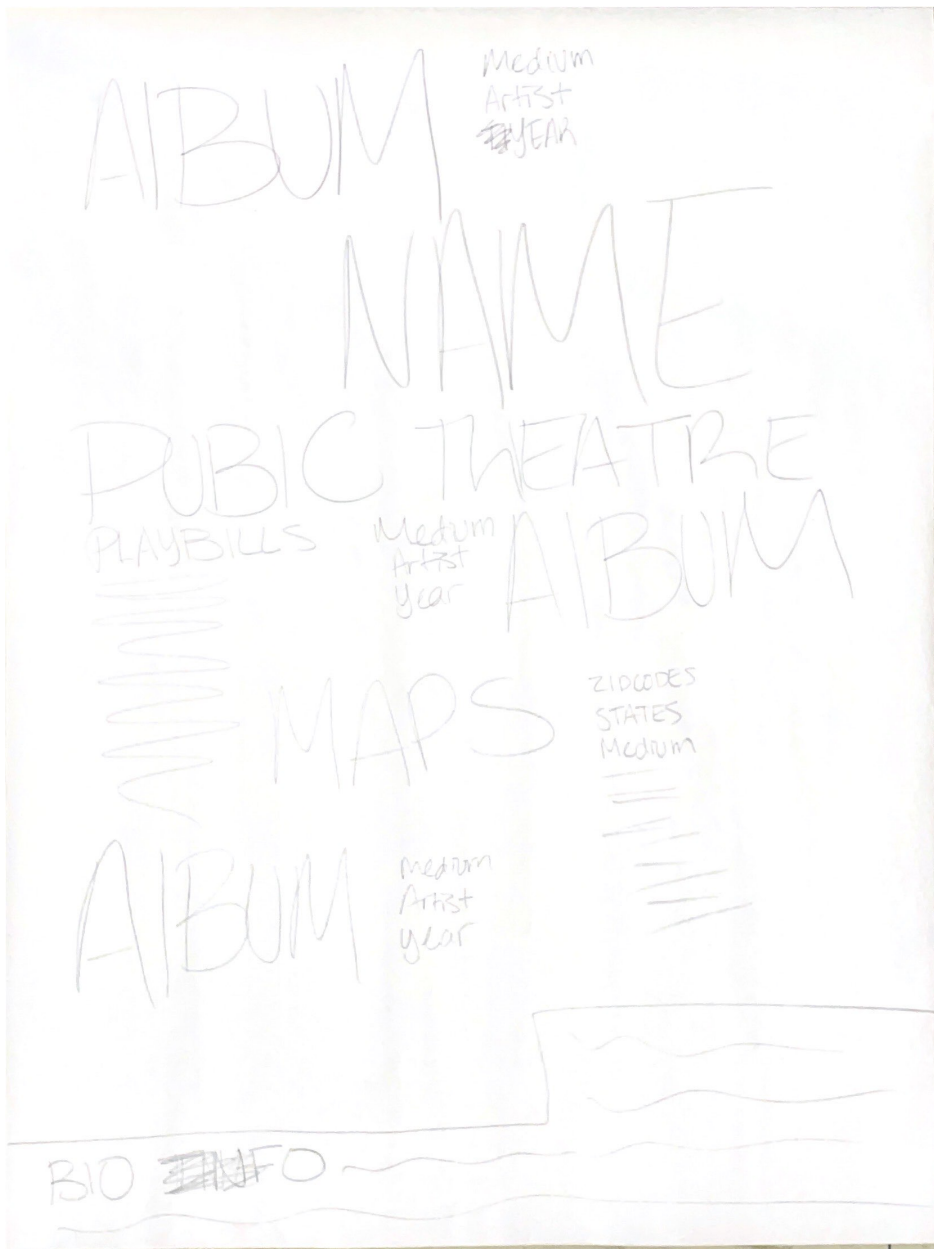 AlBUM
Medium
Artist
YEAR
NAME
PUBIC THEATRE
PLAYBILLS
Medium
Artist
year
AlBUM
MAPS
ZIPCODES
STATES
Medium
AlBUM
Medium
Artist
year
BIO INFO